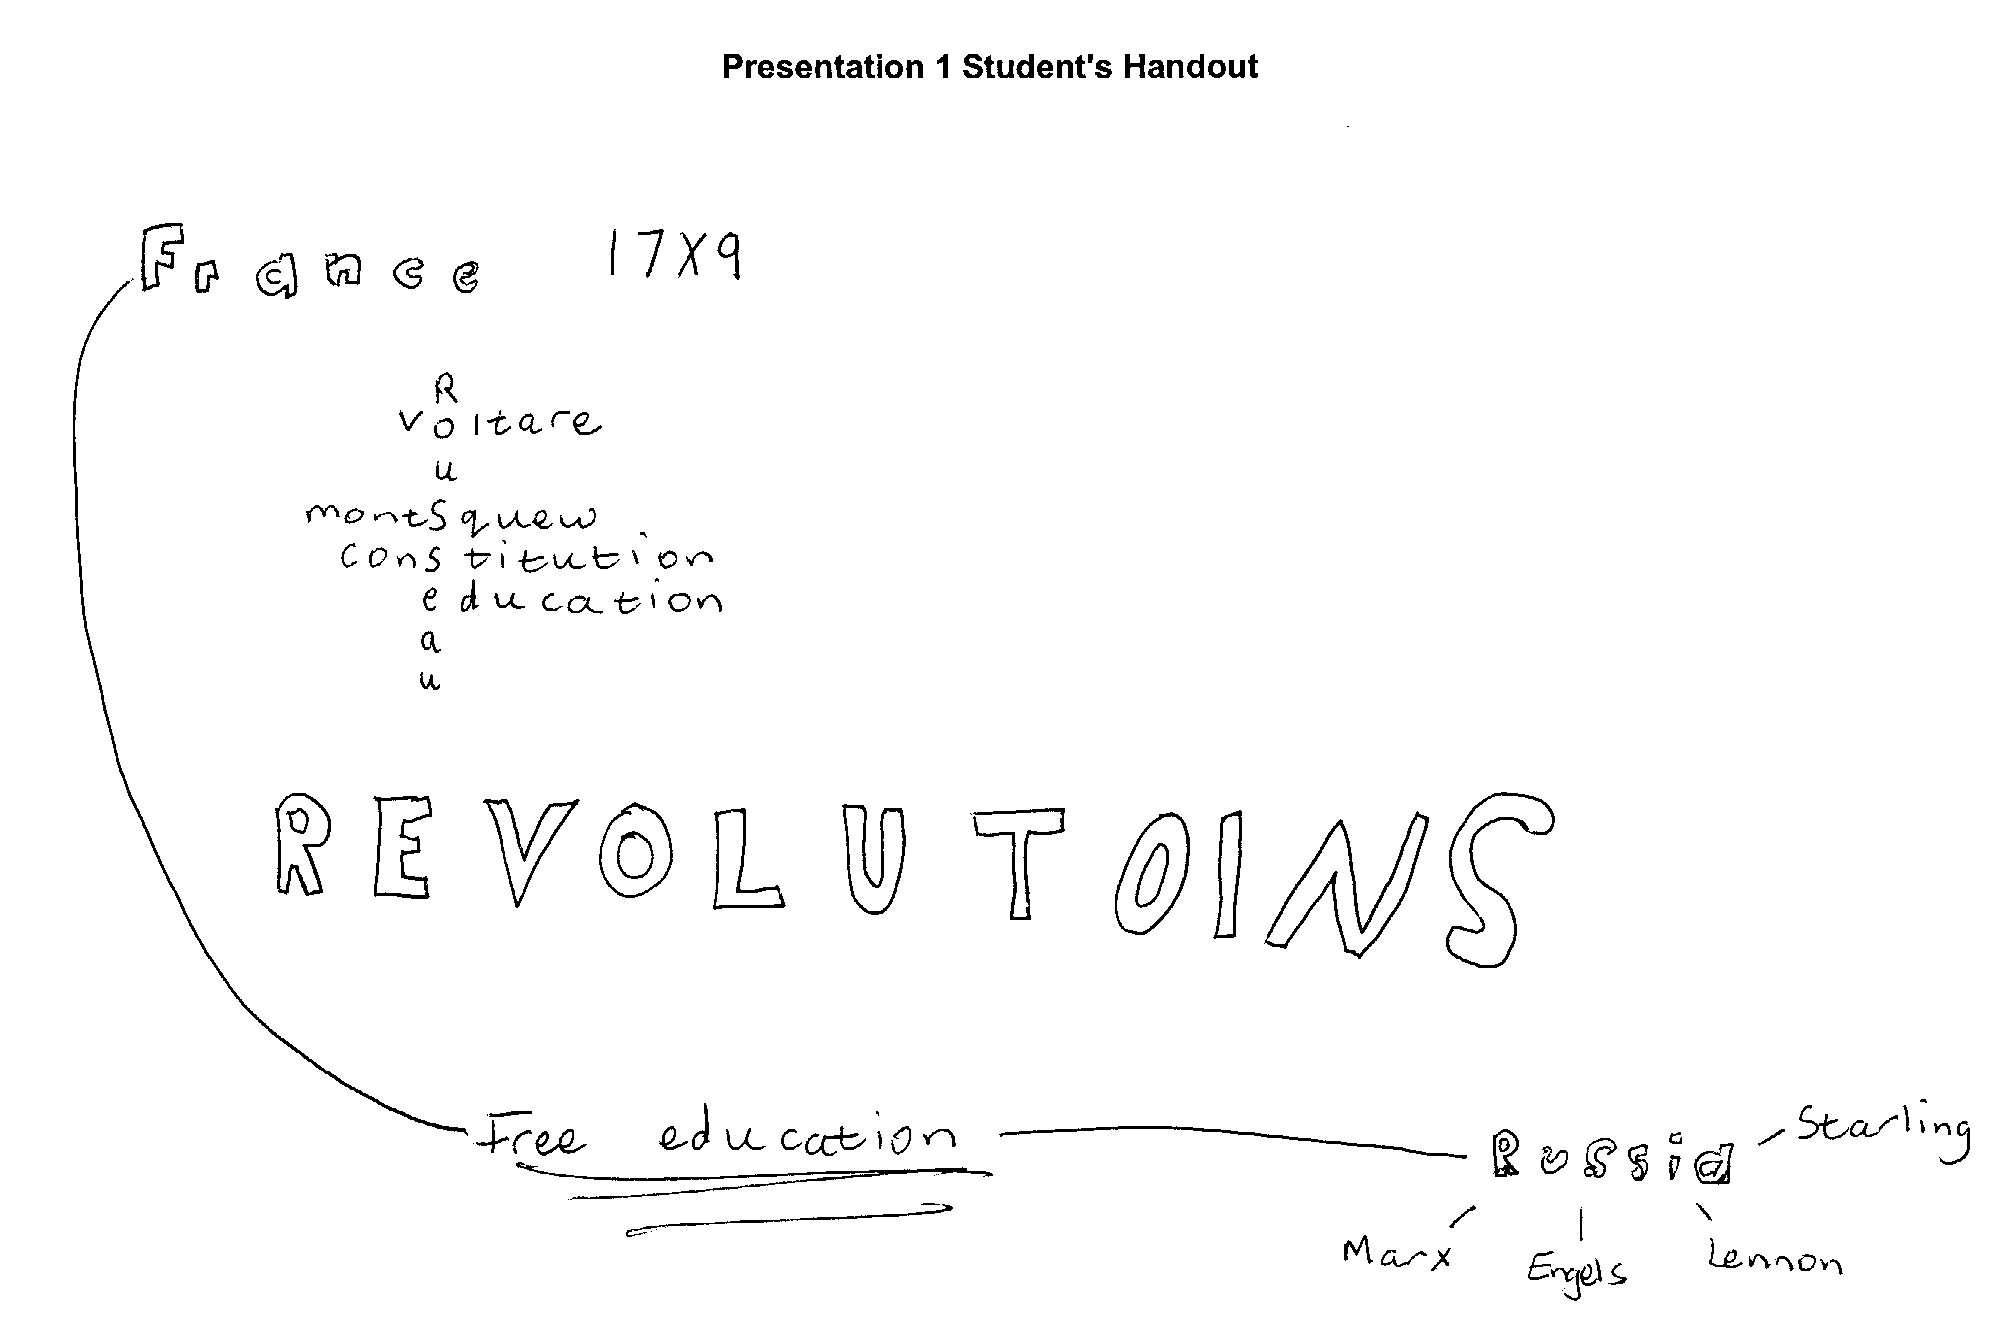 Presentation 1 Student's Handout
France 17X9
R
voltare
u
montSquew
constitution
education
a
u
REVOLUTOINS
Free education
Russia
Starling
Marx
Engels
Lennon